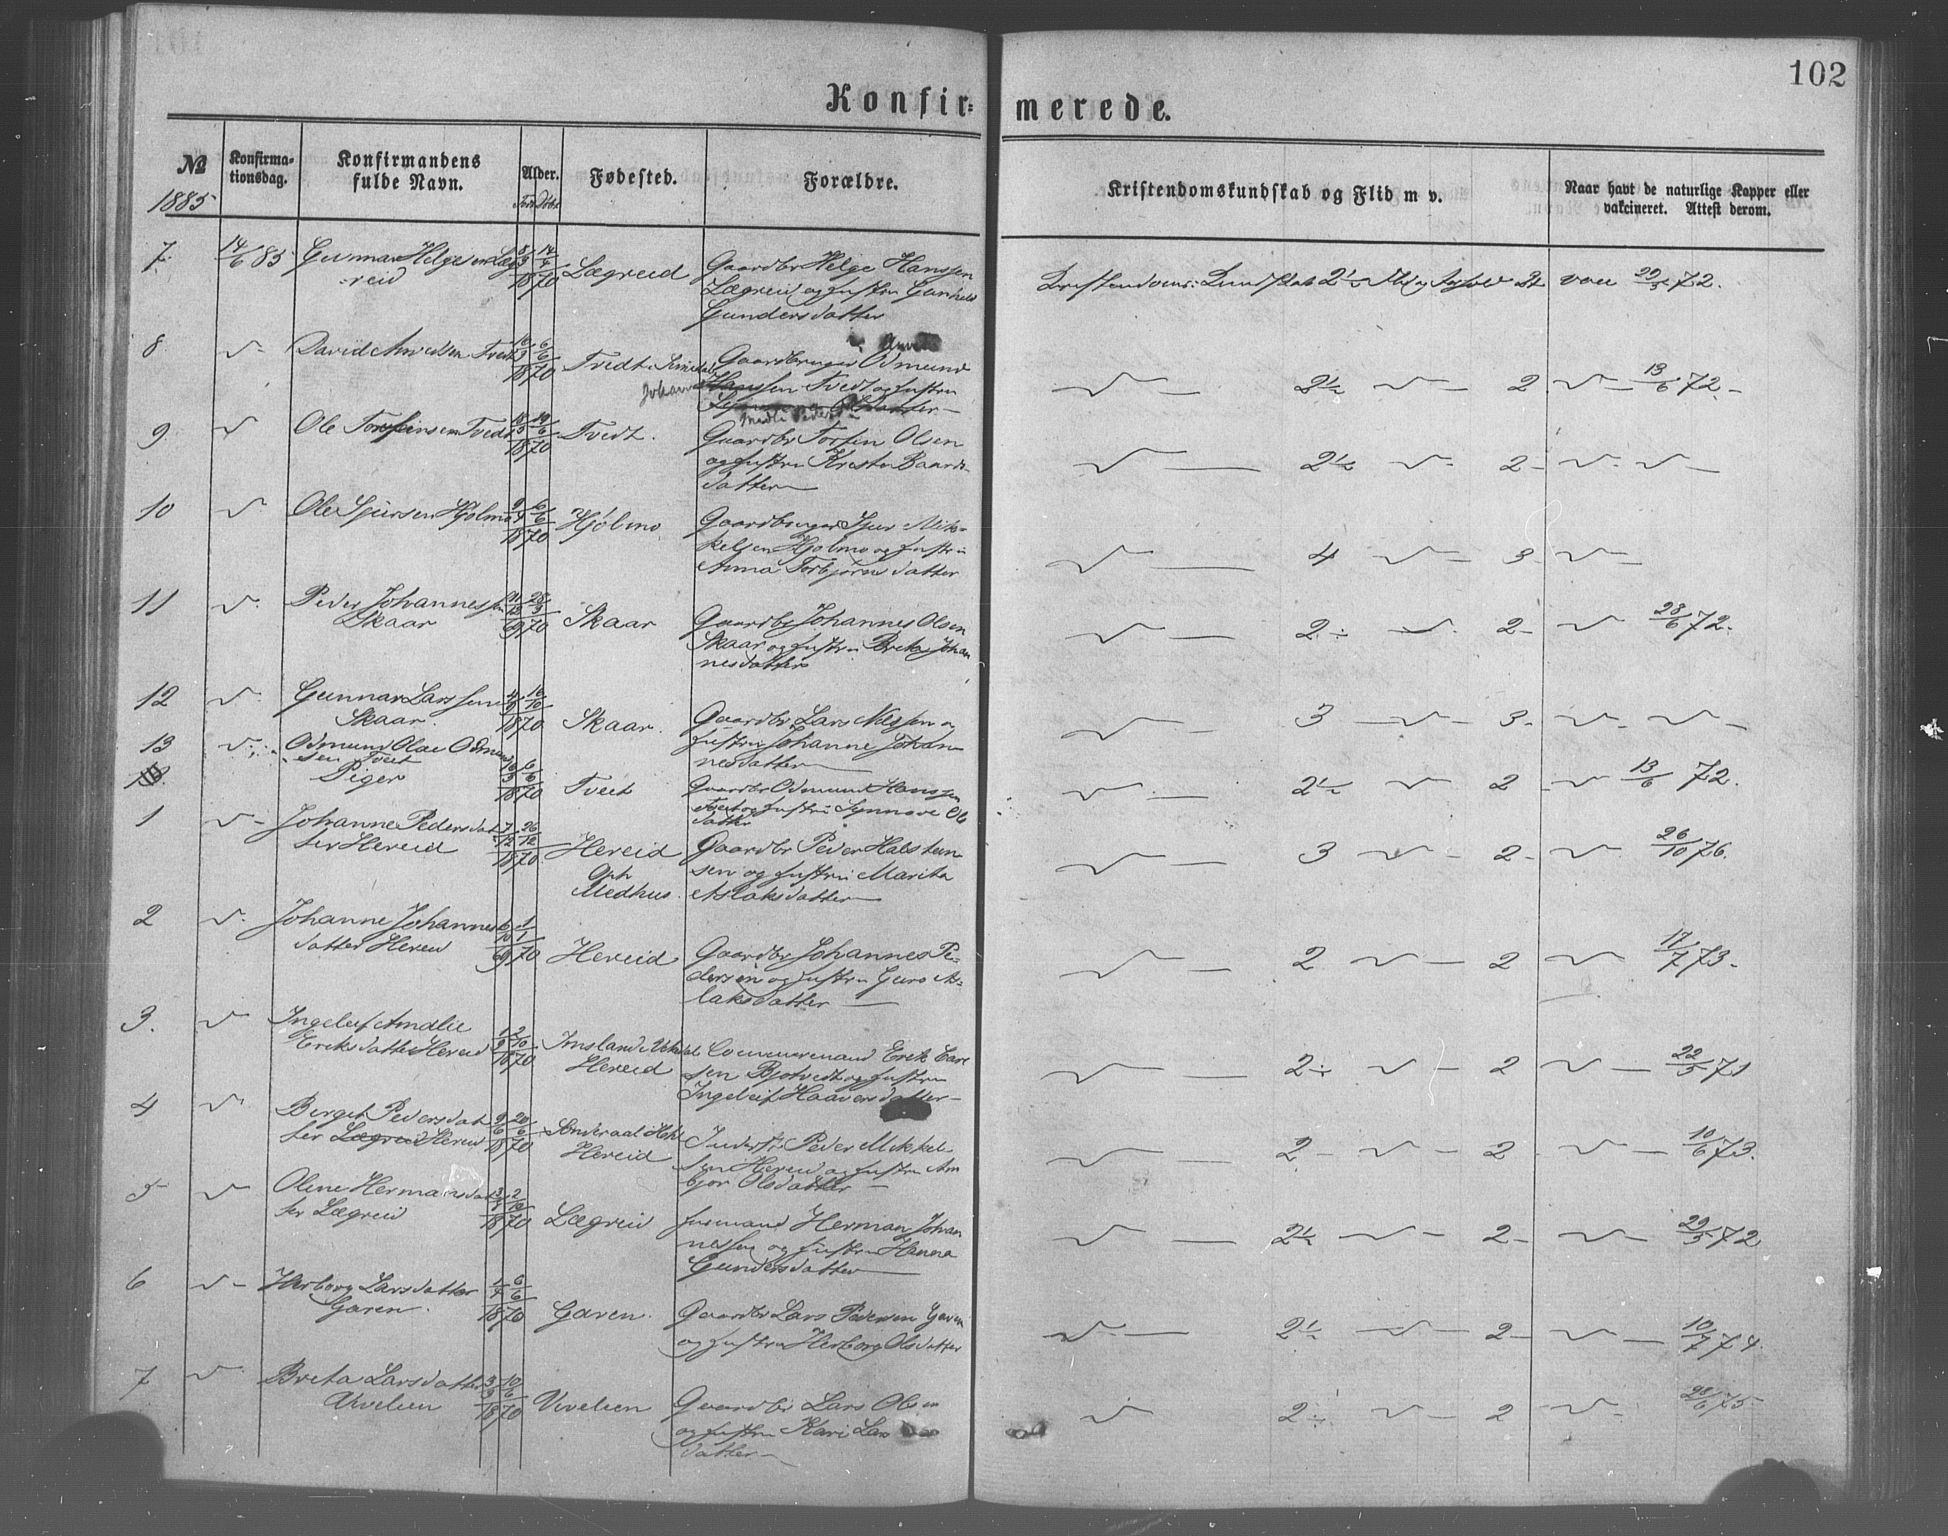 102
Konfir= merede.
№ 1885
Konfirma=
tionsdag.
Konfirmandens
fulde Navn.
Alder.
Fødested.
Forældre.
Kristendomskundskab og Flid m v.
Naar havt de naturlige Kopper eller
vakcineret. Attest derom.
7. 14/6 85 Gunnar Helgesen Læg
reid 1870 Lægreid Gaardbr Helge Hanssen
Lægreid og hustru Gunhild
Gundersdatter
Kristendoms: Kundskab 2½ Flid og 2½ vac 72.
8 David Tvedt 1870 Tvedt i Gaardbruger Odmund
Johan Hanssen Tvedt og hustru
2½ 2 13/6 72.
9 Ole Torfinsen Tvedt 1870 Tvedt. Gaardbr Torfin Olsen
og hustru Kristi Baards
datter
2½ 2
10 Ole Sjursen Hjølmo 1870 Hjølmo Gaardbruger Sjur Mik=
kelsen Hjølmo og hustru
Anna Torbjørnsdatter
4 3
11 Peder Johannessen
Skaar 69 70 Skaar Gaardbr Johannes Olsen
Skaar og hustru Brita Johan
nesdatter
2 2 28/6 72.
12 Gunnar Larssen
Skaar. 1870 Skaar. Gaardbr Lars Nilssen og
hustru Johanne Johan
nesdatter
3 3
13 Odmund Olai Odmund
sen Tveit 16/3 6/6 1870 Tveit Gaardbr Odmund Hanssen
Tveit og hustru Synnove Ols
datter
2½ 2 13/6 72.
Piger
1 Johanne Pedersdat
ter Hereid 7/12 26/12 1870 Hereid
Medhus. Gaardbr Peder Halstein
sen og hustru Marita
Aslaksdatter
3 2 26/10 76.
2 Johanne Johannes
datter Hereid 69 70 Hereid Gaardbr Johannes Pe=
dersen og hustru Guro As=
laksdatter
2 2 17/7 73.
3. Ingeleif Amalie
Eriksdatter Hereid 1870 Hereid Erik
sen og hustru
Ingeleif Haaversdatter
2 2 22/5 71
4 Berget Pedersdat
ter Lægreid Hereid 9/6 20/6 1870 Hereid Inderst Peder Mikkel
sen Hereid og hustru Am
bjør Olsdatter
2 2 10/6 73.
5 Olene Hermansdat
ter Lægreid 1870 Lægreid husmand Herman Johan
nessen og hustru Hanna
Gundersdatter
2½ 2 29/5 72
6 Herborg Larsdatter
Garen. 1/4 6/6 1870 Garen. Gaardbr Lars Pedersen Garen
og hustru Herborg Olsdatter
2½ 2 10/7 74.
7 Breta Larsdatter
Vivelien 1870 Vivelien Gaardbr Lars Olsen
og hustru Kari Lars
datter
2 2 28/6 75.